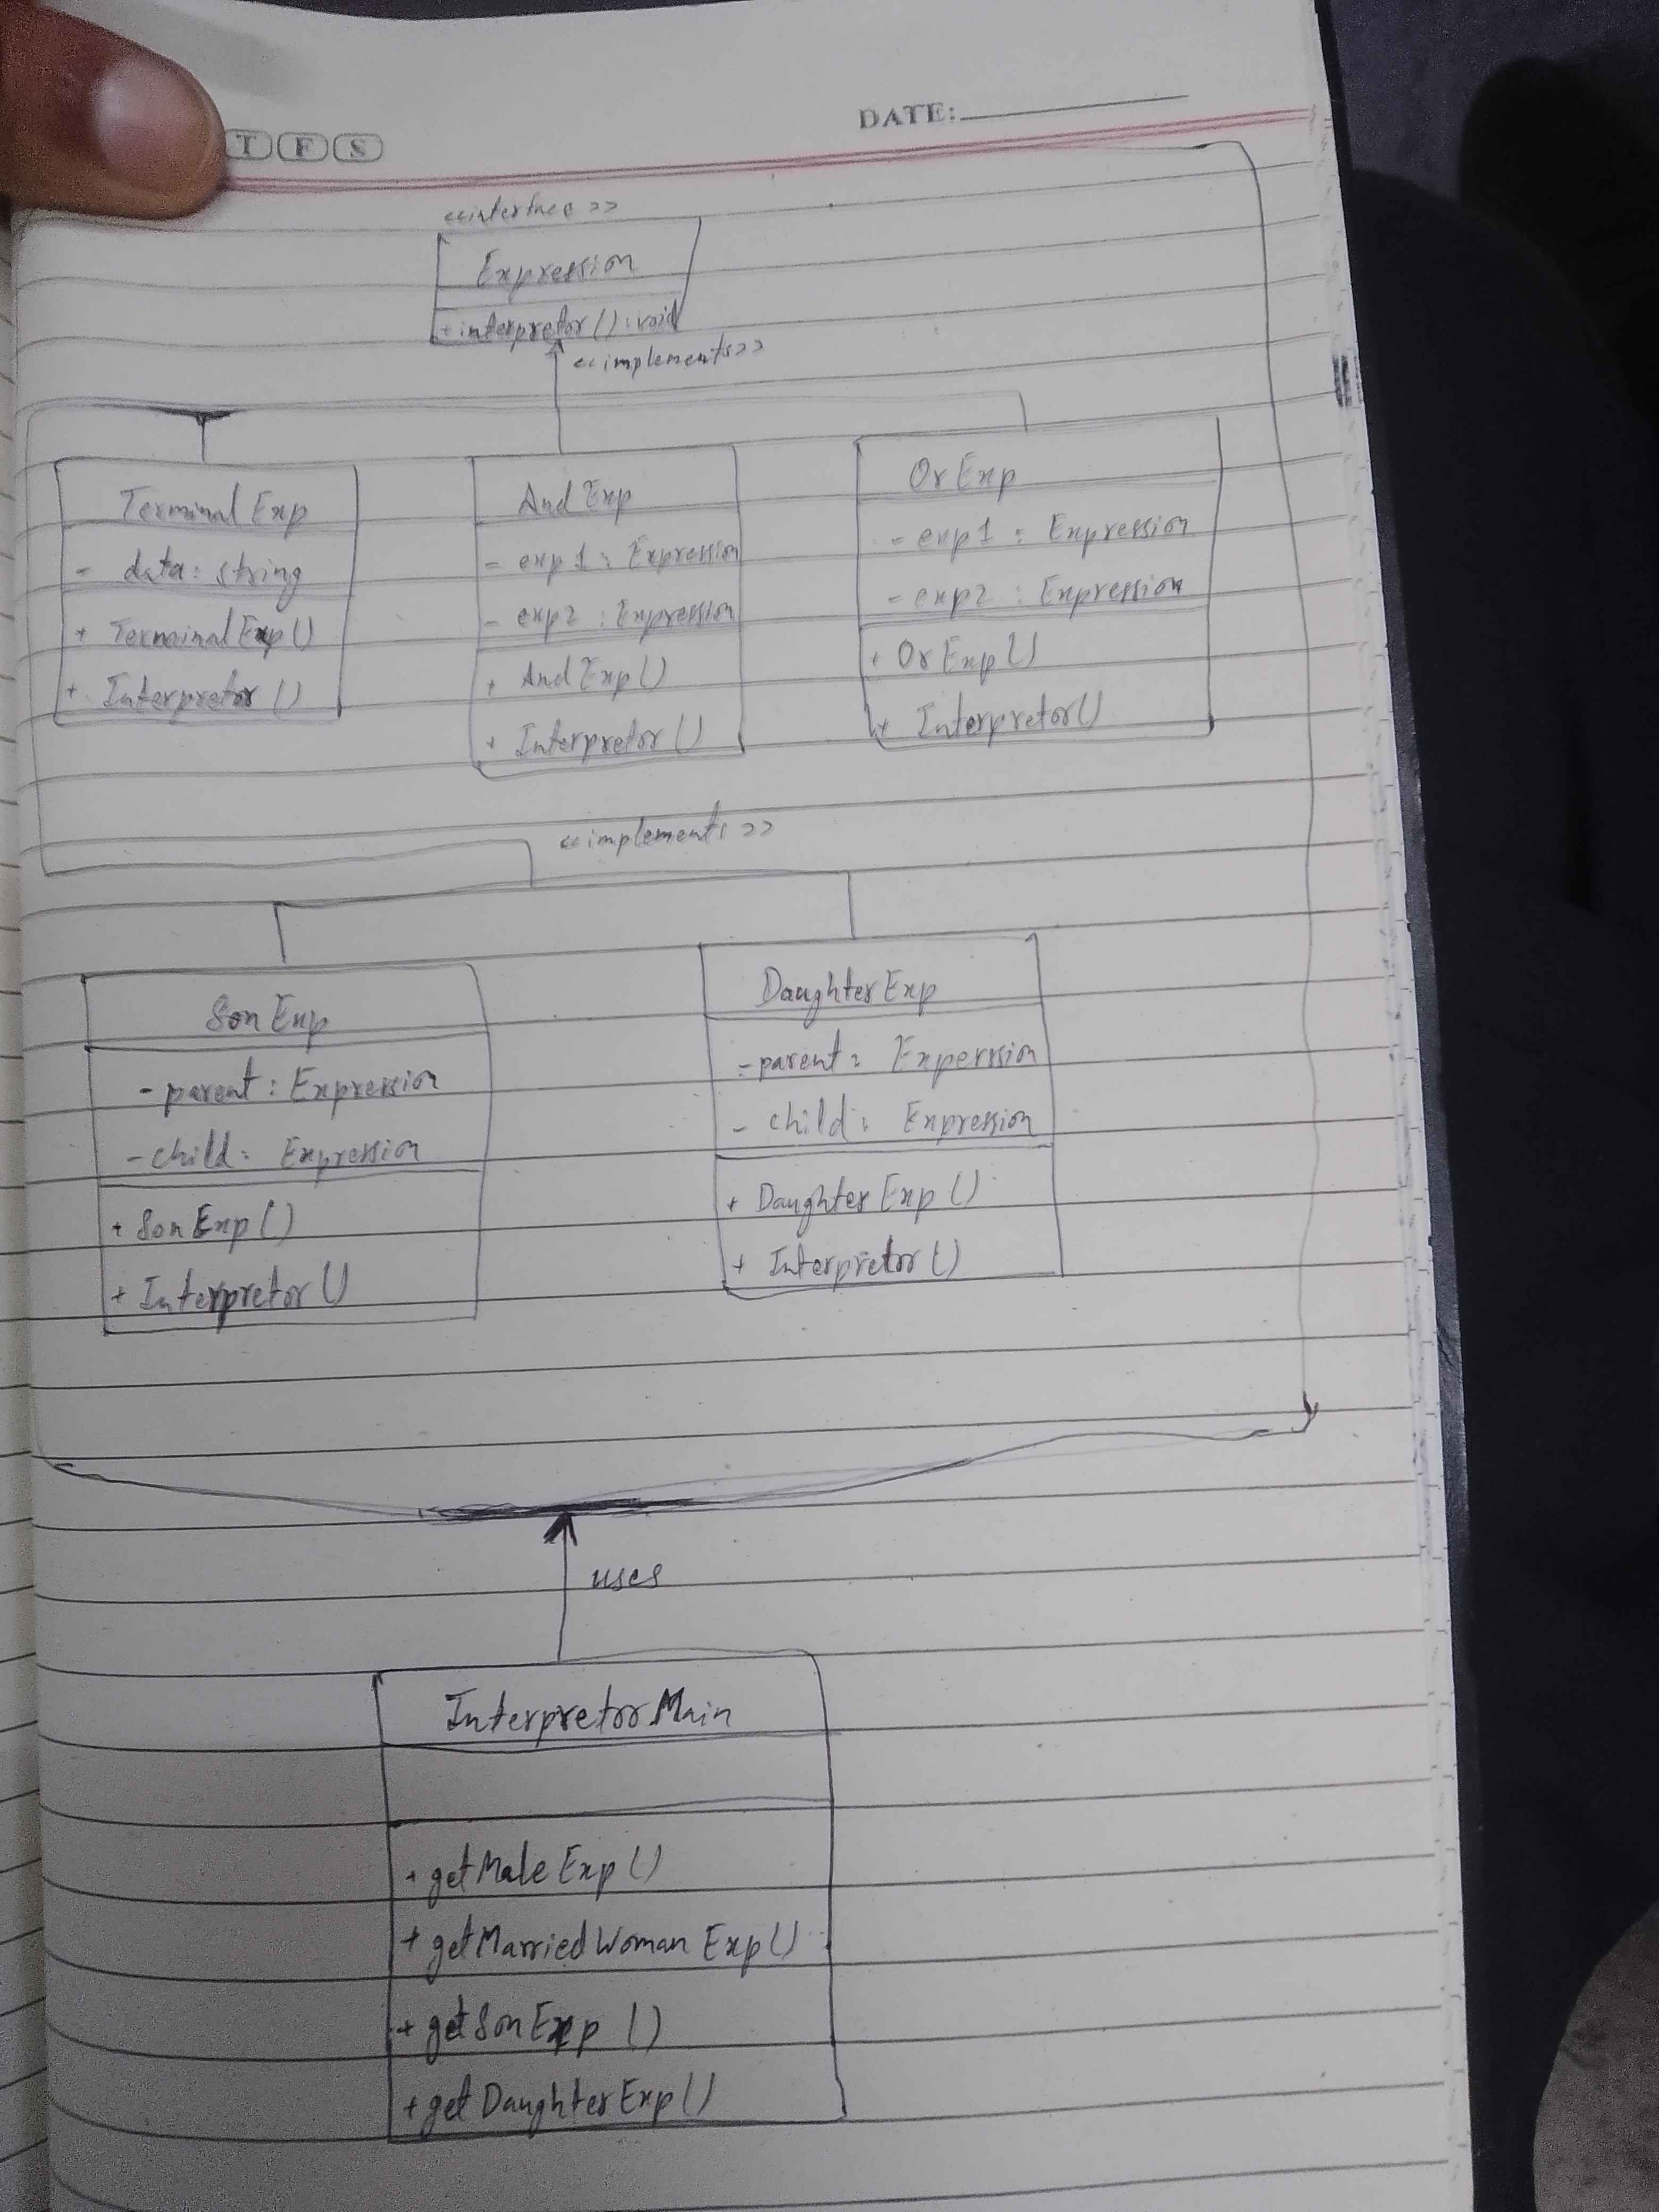 T F S
DATE:
<<interface>>
Expression
+ interpretor() : void
<<implements>>
Terminal Exp
- data: string
+ Terminal Exp()
+ Interpretor()
And Exp
- exp1 : Expression
- exp2 : Expression
+ And Exp()
+ Interpretor()
Or Exp
- exp1 : Expression
- exp2 : Expression
+ Or Exp()
+ Interpretor()
<<implements>>
Son Exp
- parent : Expression
- child : Expression
+ Son Exp()
+ Interpretor()
Daughter Exp
- parent : Experssion
- child : Expression
+ Daughter Exp()
+ Interpretor()
uses
Interpretor Main
+ getMale Exp()
+ getMarried Woman Exp()
+ getSon Exp()
+ getDaughter Exp()